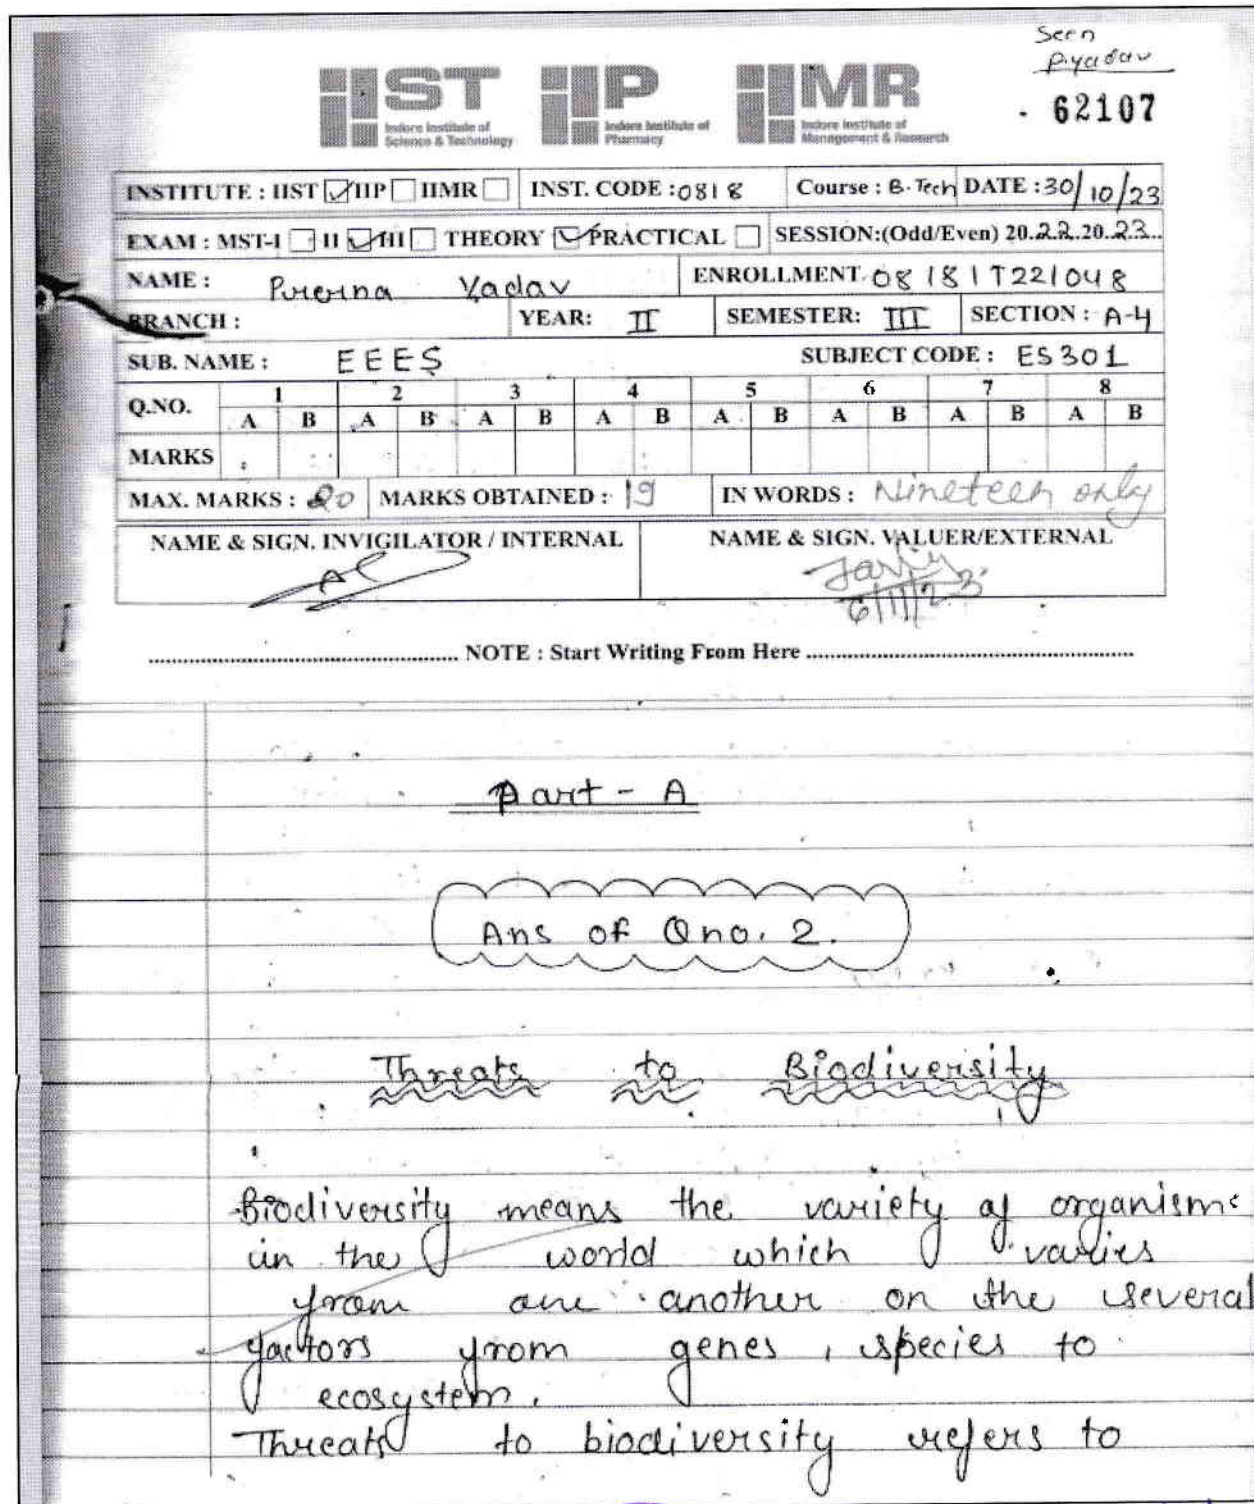 Seen
Pyadav
62107
IIST IIP IIMR
Indore Institute of Science & Technology
Indore Institute of Pharmacy
Indore Institute of Management & Research
INSTITUTE : IIST ☑ IIP ☐ IIMR ☐ INST. CODE : 0818 Course : B.Tech DATE : 30/10/23
EXAM : MST-I ☐ II ☑ III ☐ THEORY ☑ PRACTICAL ☐ SESSION:(Odd/Even) 20.22.20.23..
NAME : Prerna Yadav ENROLLMENT. 0818IT221048
BRANCH : YEAR: II SEMESTER: III SECTION : A-4
SUB. NAME : EEES SUBJECT CODE : ES301
Q.NO. 1 2 3 4 5 6 7 8
A B A B A B A B A B A B A B A B
MARKS
MAX. MARKS : 20 MARKS OBTAINED : 19 IN WORDS : Nineteen only
NAME & SIGN. INVIGILATOR / INTERNAL NAME & SIGN. VALUER/EXTERNAL
6/11/23
NOTE : Start Writing From Here
Part - A
Ans of Qno. 2.
Threats to Biodiversity
Biodiversity means the variety of organisms
in the world which varies
from one another on the several
factors from genes, species to
ecosystem.
Threats to biodiversity refers to